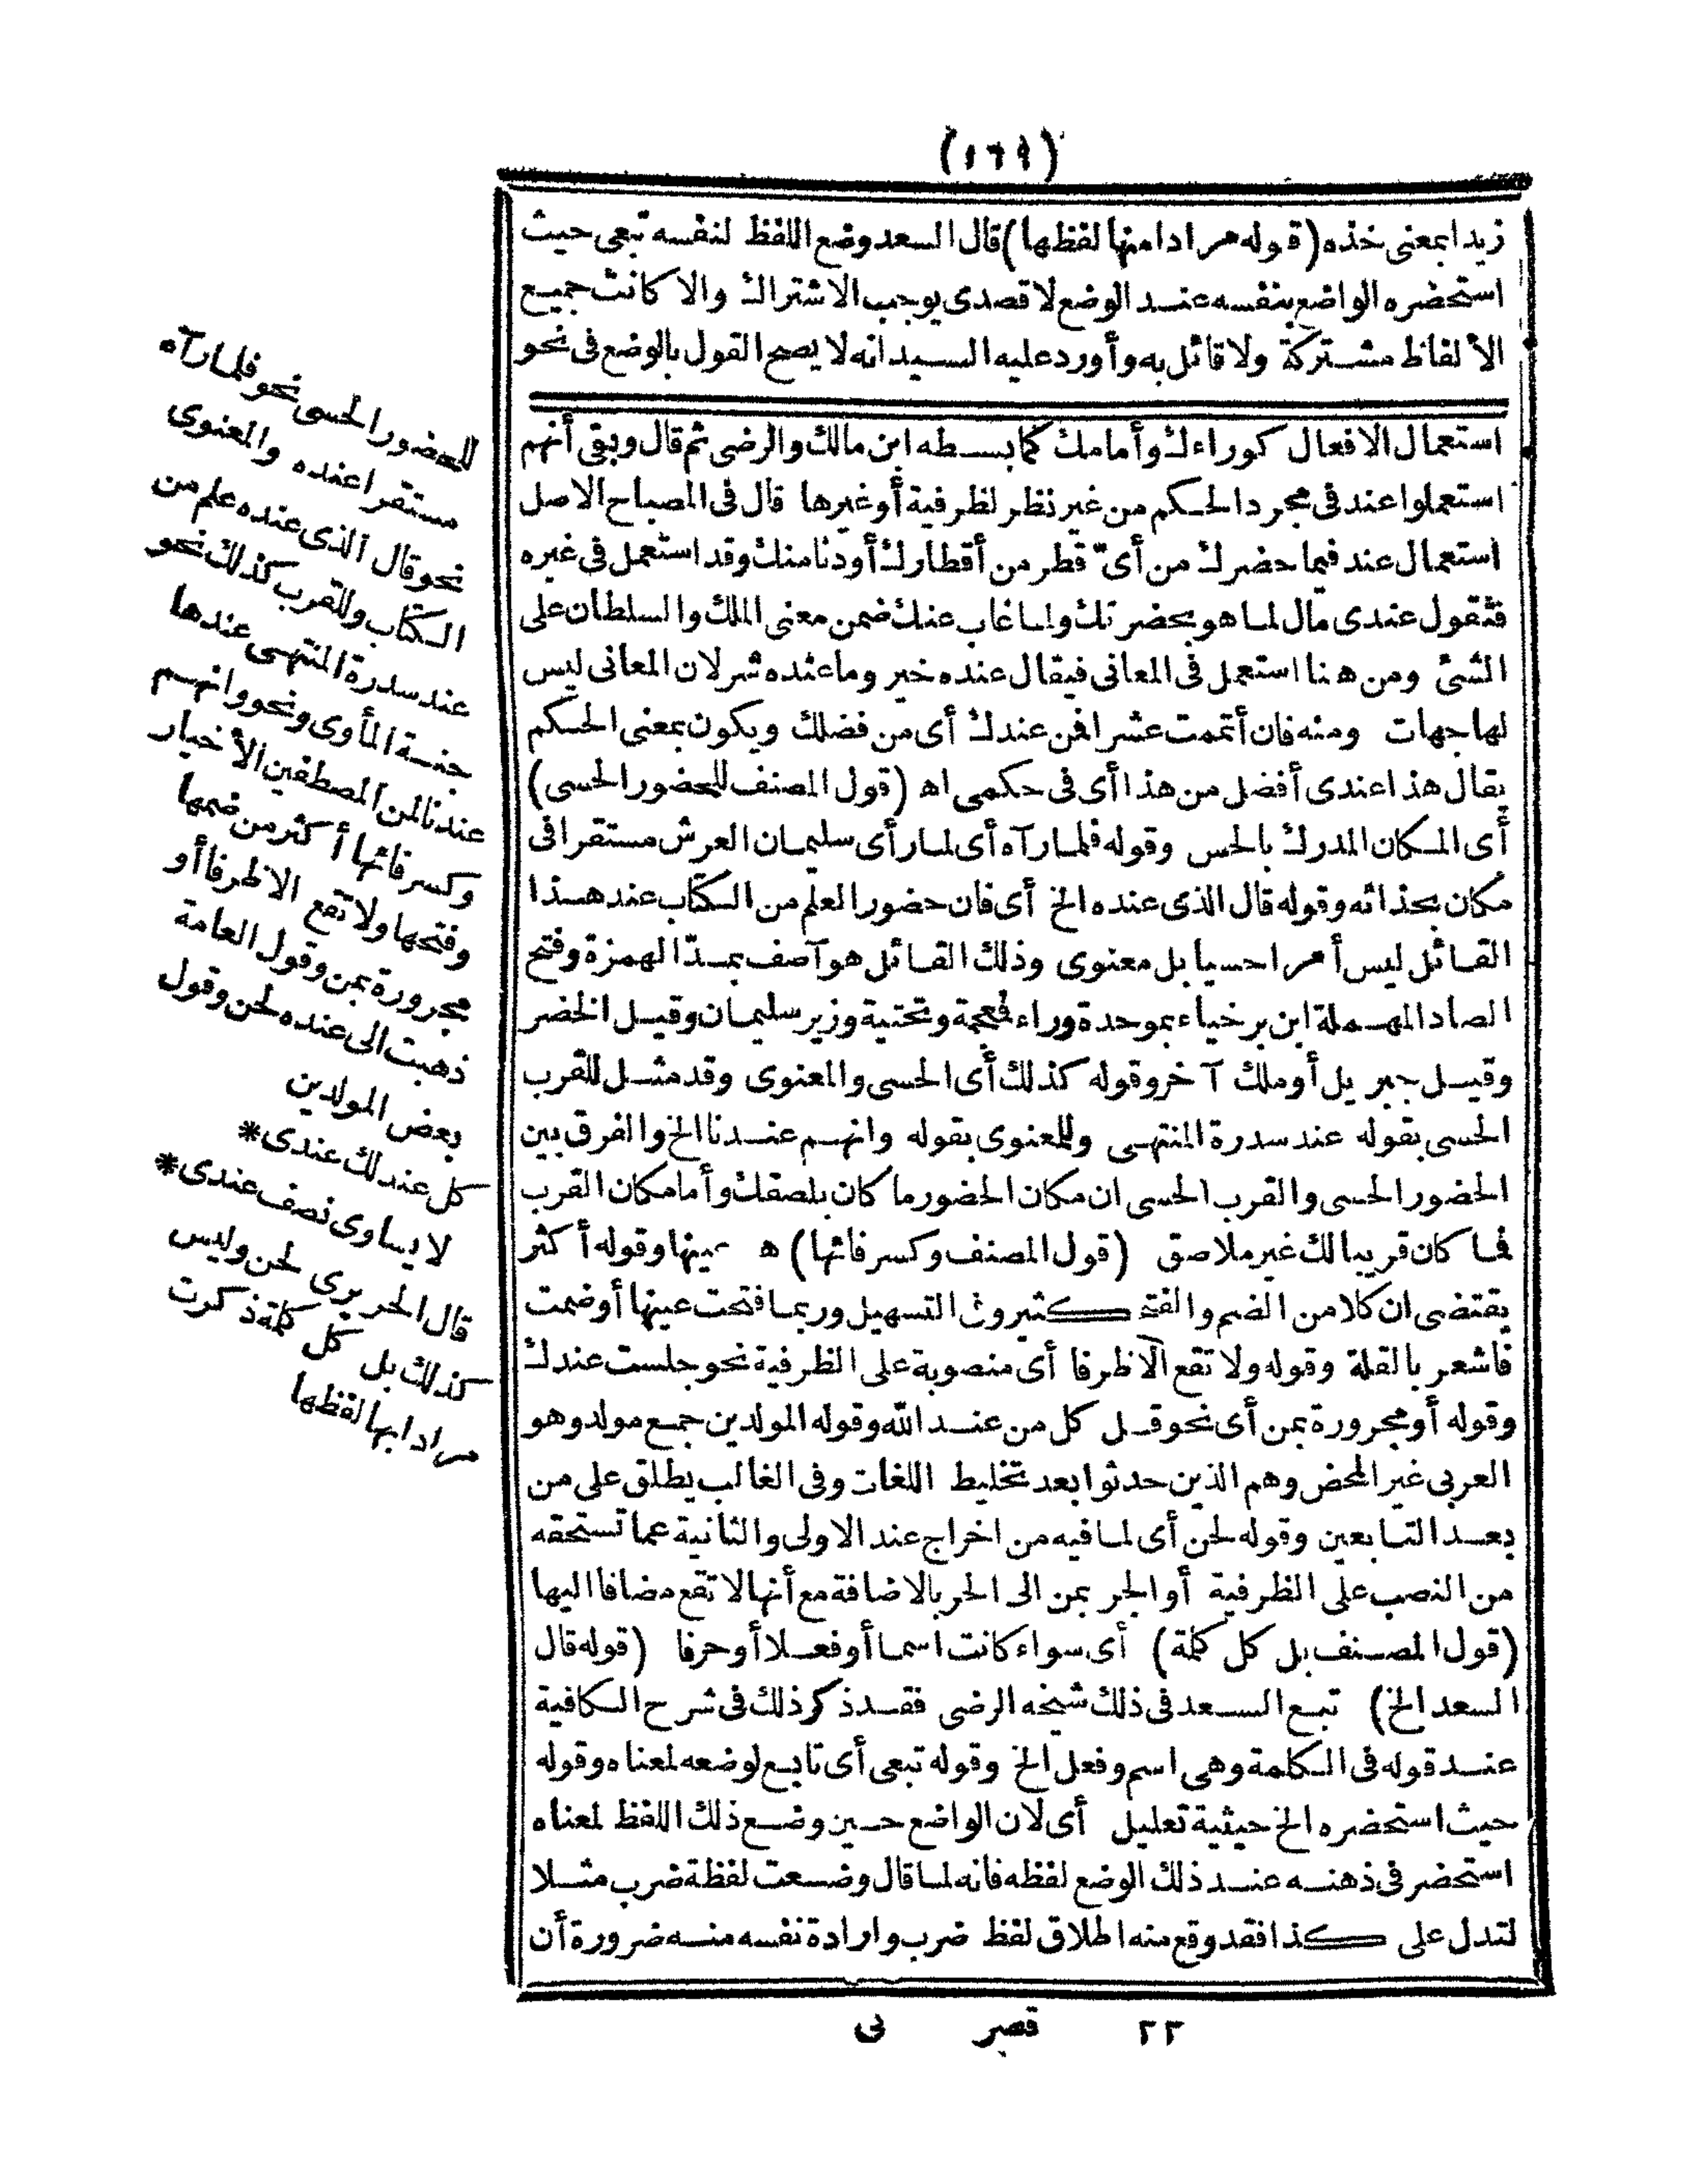 (١٦٩)
زيدا بمعنى خذه (قوله مرادا منها لفظها) قال السعد وضع اللفظ لنفسه تبعى حيث
استحضره الواضع بنفسه عند الوضع لا قصدى يوجب الاشتراك والا كانت جميع
الألفاظ مشتركة ولا قائل به وأورد عليه السيد انه لا يصح القول بالوضع فى نحو
استعمال الافعال كوراءك وأمامك كما بسطه ابن مالك والرضى ثم قال وبقى أنهم
استعملوا عند فى مجرد الحكم من غير نظر لظرفية أو غيرها قال فى المصباح الاصل
استعمال عند فيما حضرك من أىّ قطر من أقطارك أو دنا منك وقد استعمل فى غيره
فتقول عندى مال لما هو بحضرتك ولما غاب عنك ضمن معنى الملك والسلطان على
الشئ ومن هنا استعمل فى المعانى فيقال عنده خير وما عنده شر لان المعانى ليس
لها جهات ومنه فان أتممت عشرا فمن عندك أى من فضلك ويكون بمعنى الحكم
يقال هذا عندى أفضل من هذا أى فى حكمى اه (قول المصنف للحضور الحسى)
أى المكان المدرك بالحس وقوله فلما رآه أى لما رأى سليمان العرش مستقرا فى
مكان بحذائه وقوله قال الذى عنده الخ أى فان حضور العلم من الكتاب عند هذا
القائل ليس أمرا حسيا بل معنوى وذلك القائل هو آصف بمدّ الهمزة وفتح
الصاد المهملة ابن برخياء بموحدة وراء فمعجمة وتحتية وزير سليمان وقيل الخضر
وقيل جبريل أو ملك آخر وقوله كذلك أى الحسى والمعنوى وقد مثل للقرب
الحسى بقوله عند سدرة المنتهى وللمعنوى بقوله وانهم عندنا الخ والفرق بين
الحضور الحسى والقرب الحسى ان مكان الحضور ما كان بلصقك وأما مكان القرب
فما كان قريبا لك غير ملاصق (قول المصنف وكسر فائها) ه عينها وقوله أكثر
يقتضى ان كلا من الضم والفتح كثير وفى التسهيل وربما فتحت عينها أو ضمت
فاشعر بالقلة وقوله ولا تقع الا ظرفا أى منصوبة على الظرفية نحو جلست عندك
وقوله أو مجرورة بمن أى نحو قل كل من عند الله وقوله المولدين جمع مولد وهو
العربى غير المحض وهم الذين حدثوا بعد تخليط اللغات وفى الغالب يطلق على من
بعد التابعين وقوله لحن أى لما فيه من اخراج عند الاولى والثانية عما تستحقه
من النصب على الظرفية أو الجر بمن الى الجر بالاضافة مع أنها لا تقع مضافا اليها
(قول المصنف بل كل كلمة) أى سواء كانت اسما أو فعلا أو حرفا (قوله قال
السعد الخ) تبع السعد فى ذلك شيخه الرضى فقد ذكر ذلك فى شرح الكافية
عند قوله فى الكلمة وهى اسم وفعل الخ وقوله تبعى أى تابع لوضعه لمعناه وقوله
حيث استحضره الخ حيثية تعليل أى لان الواضع حين وضع ذلك اللفظ لمعناه
استحضر فى ذهنه عند ذلك الوضع لفظه فانه لما قال وضعت لفظة ضرب مثلا
لتدل على كذا فقد وقع منه اطلاق لفظ ضرب وارادة نفسه منه ضرورة أن
للحضور الحسى نحو فلما رآه
مستقرا عنده والمعنوى
نحو قال الذى عنده علم من
الكتاب وللقرب كذلك نحو
عند سدرة المنتهى عندها
جنة المأوى ونحو وانهم
عندنا لمن المصطفين الأخيار
وكسر فائها أكثر من ضمها
وفتحها ولا تقع الا ظرفا أو
مجرورة بمن وقول العامة
ذهبت الى عنده لحن وقول
بعض المولدين
كل عند لك عندى *
لا يساوى نصف عندى *
قال الحريرى لحن وليس
كذلك بل كل كلمة ذكرت
مرادا بها لفظها
٢٢ قصر نى